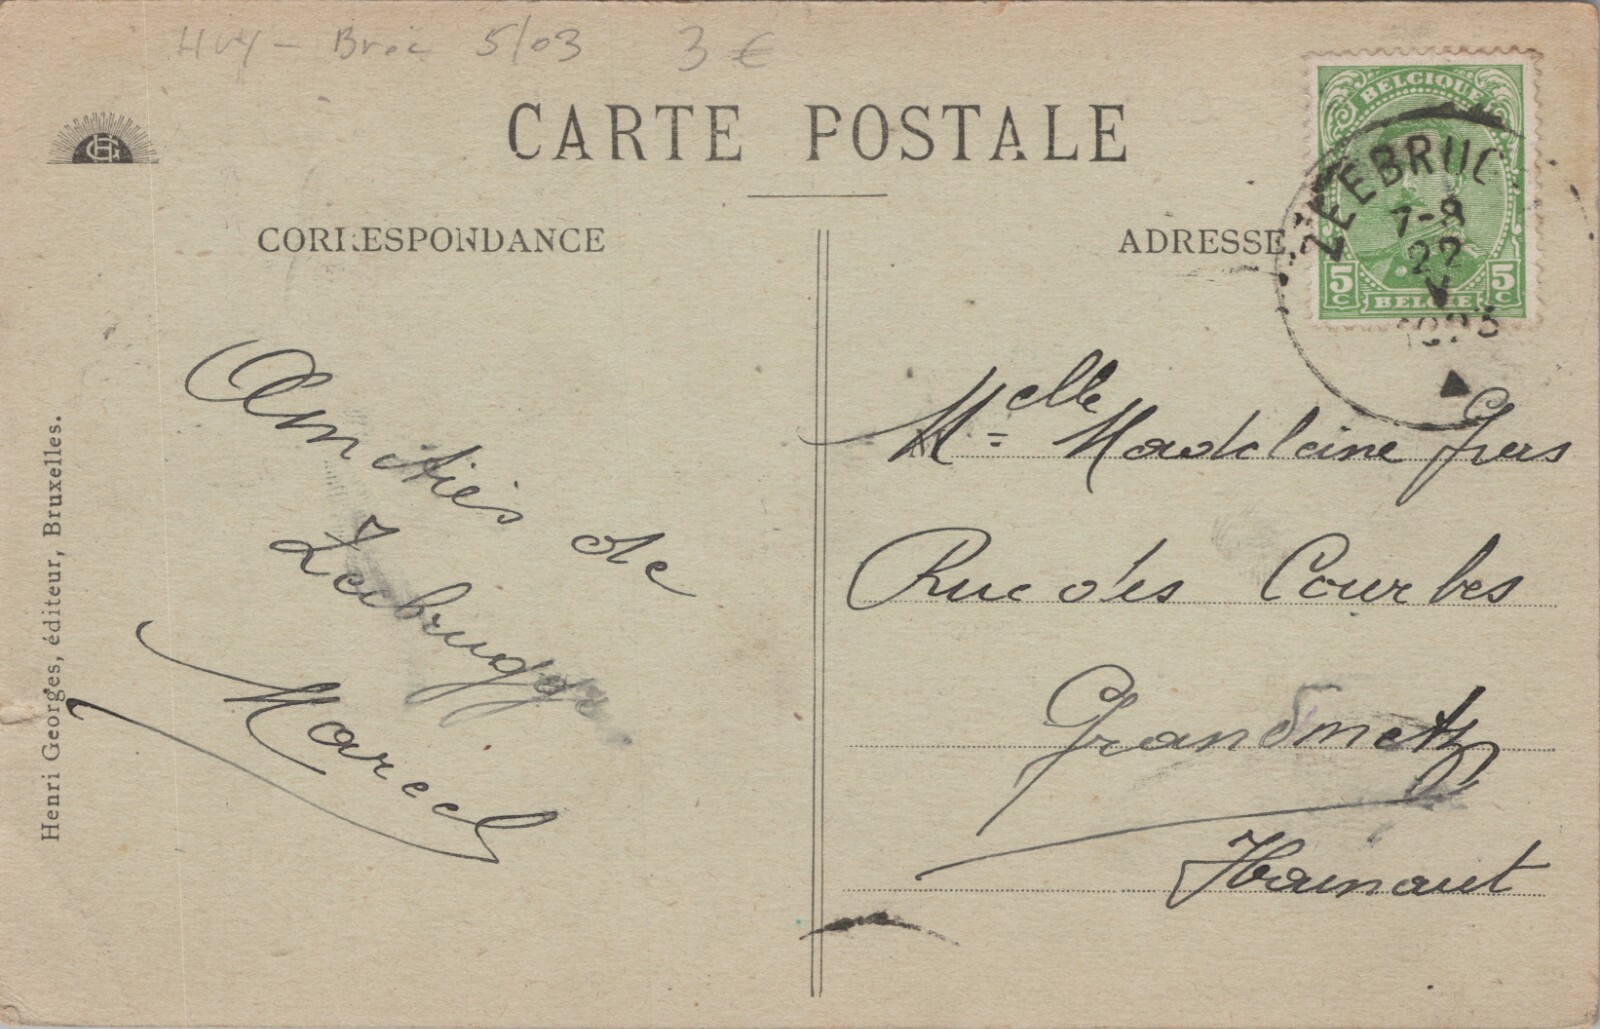 HUY - Broc 5/03 3 €
CARTE POSTALE
CORRESPONDANCE
ADRESSE
BELGIQUE
5 C 5 C
BELGIE
ZEEBRUG
7-8
22
V
1923
HG
Henri Georges, éditeur, Bruxelles.
Amitiés de
Zeebrugge
Marcel
Melle Madeleine
Rue des Courbes
Grandmetz
Hainaut